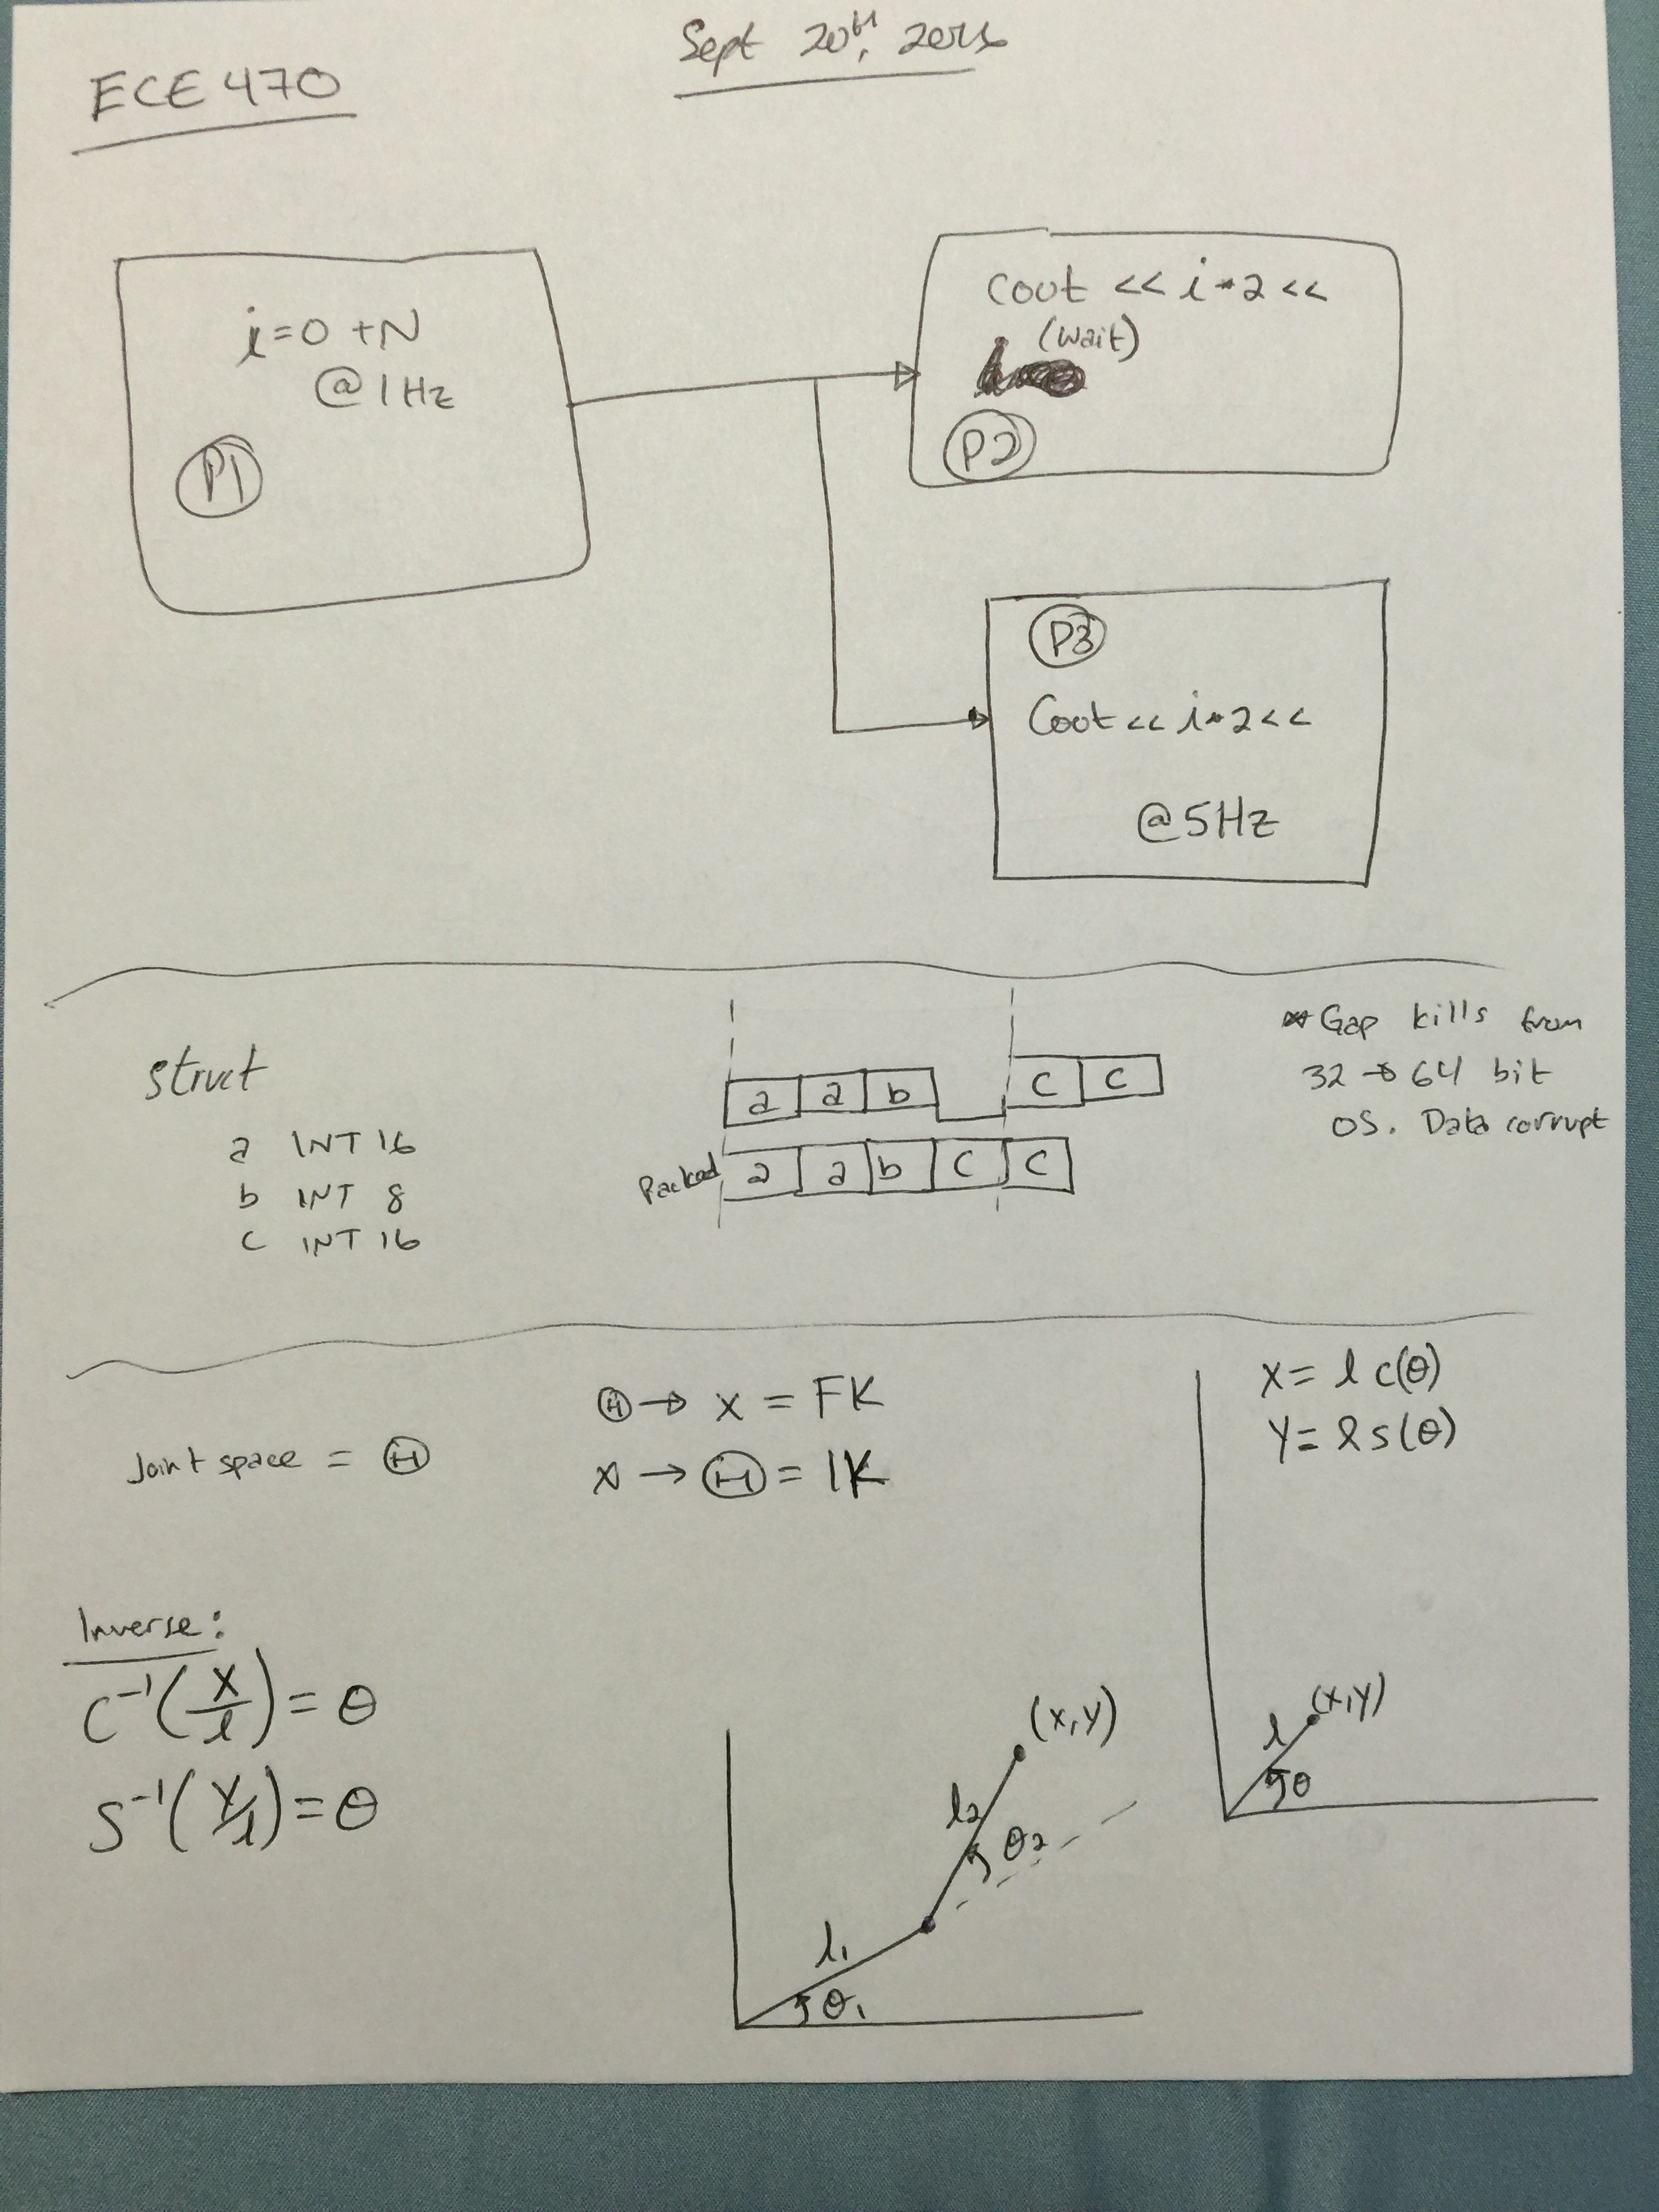 ECE 470
Sept 20th,
i=0 +N
@1Hz
P1
Cout << i*2 <<
(wait)
P2
P3
Cout << i*2 <<
@5Hz
struct
a INT 16
b INT 8
c INT 16
a a b c c
Packed a a b c c
* Gap kills from
32 → 64 bit
OS. Data corrupt
Joint space = Ⓗ
Ⓗ → x = FK
x → Ⓗ = IK
x = l c(θ)
y = l s(θ)
(x,y)
l
θ
Inverse:
C⁻¹(x/l) = θ
S⁻¹(y/l) = θ
(x,y)
l₂
θ₂
l₁
θ₁